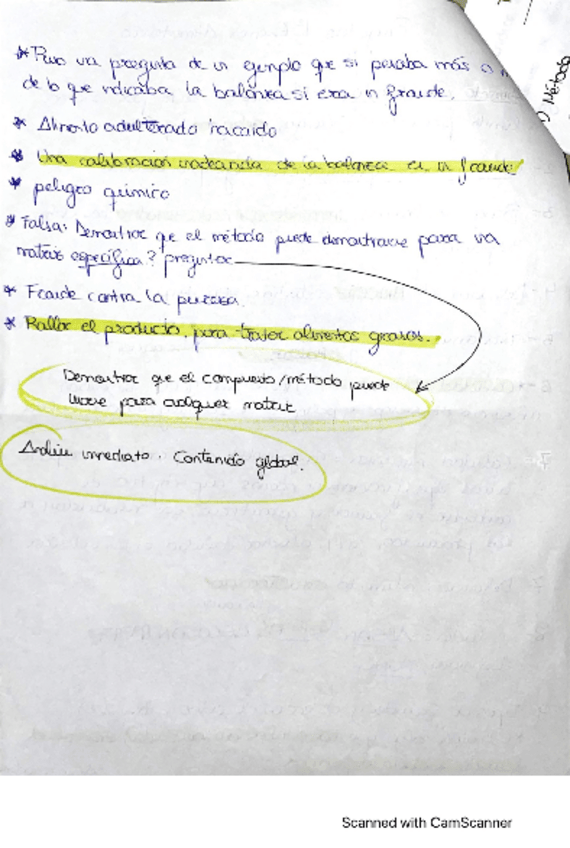 * Puso una pregunta de un ejemplo que si pesaba más o m
de lo que indicaba la balanza si era un fraude.
* Alimento adulterado nacido
* Una calibración inadecuada de la balanza es un fraude
* peligro químico
* Falsa: Demostrar que el método puede demostrarse para una
matriz específica? preguntar
* Fraude contra la pureza.
* Rallar el producto. para tratar alimentos grasos.
Demostrar que el compuesto/método puede
para cualquier matriz
Análisis inmediato. Contenido global.
D Método
Scanned with CamScanner